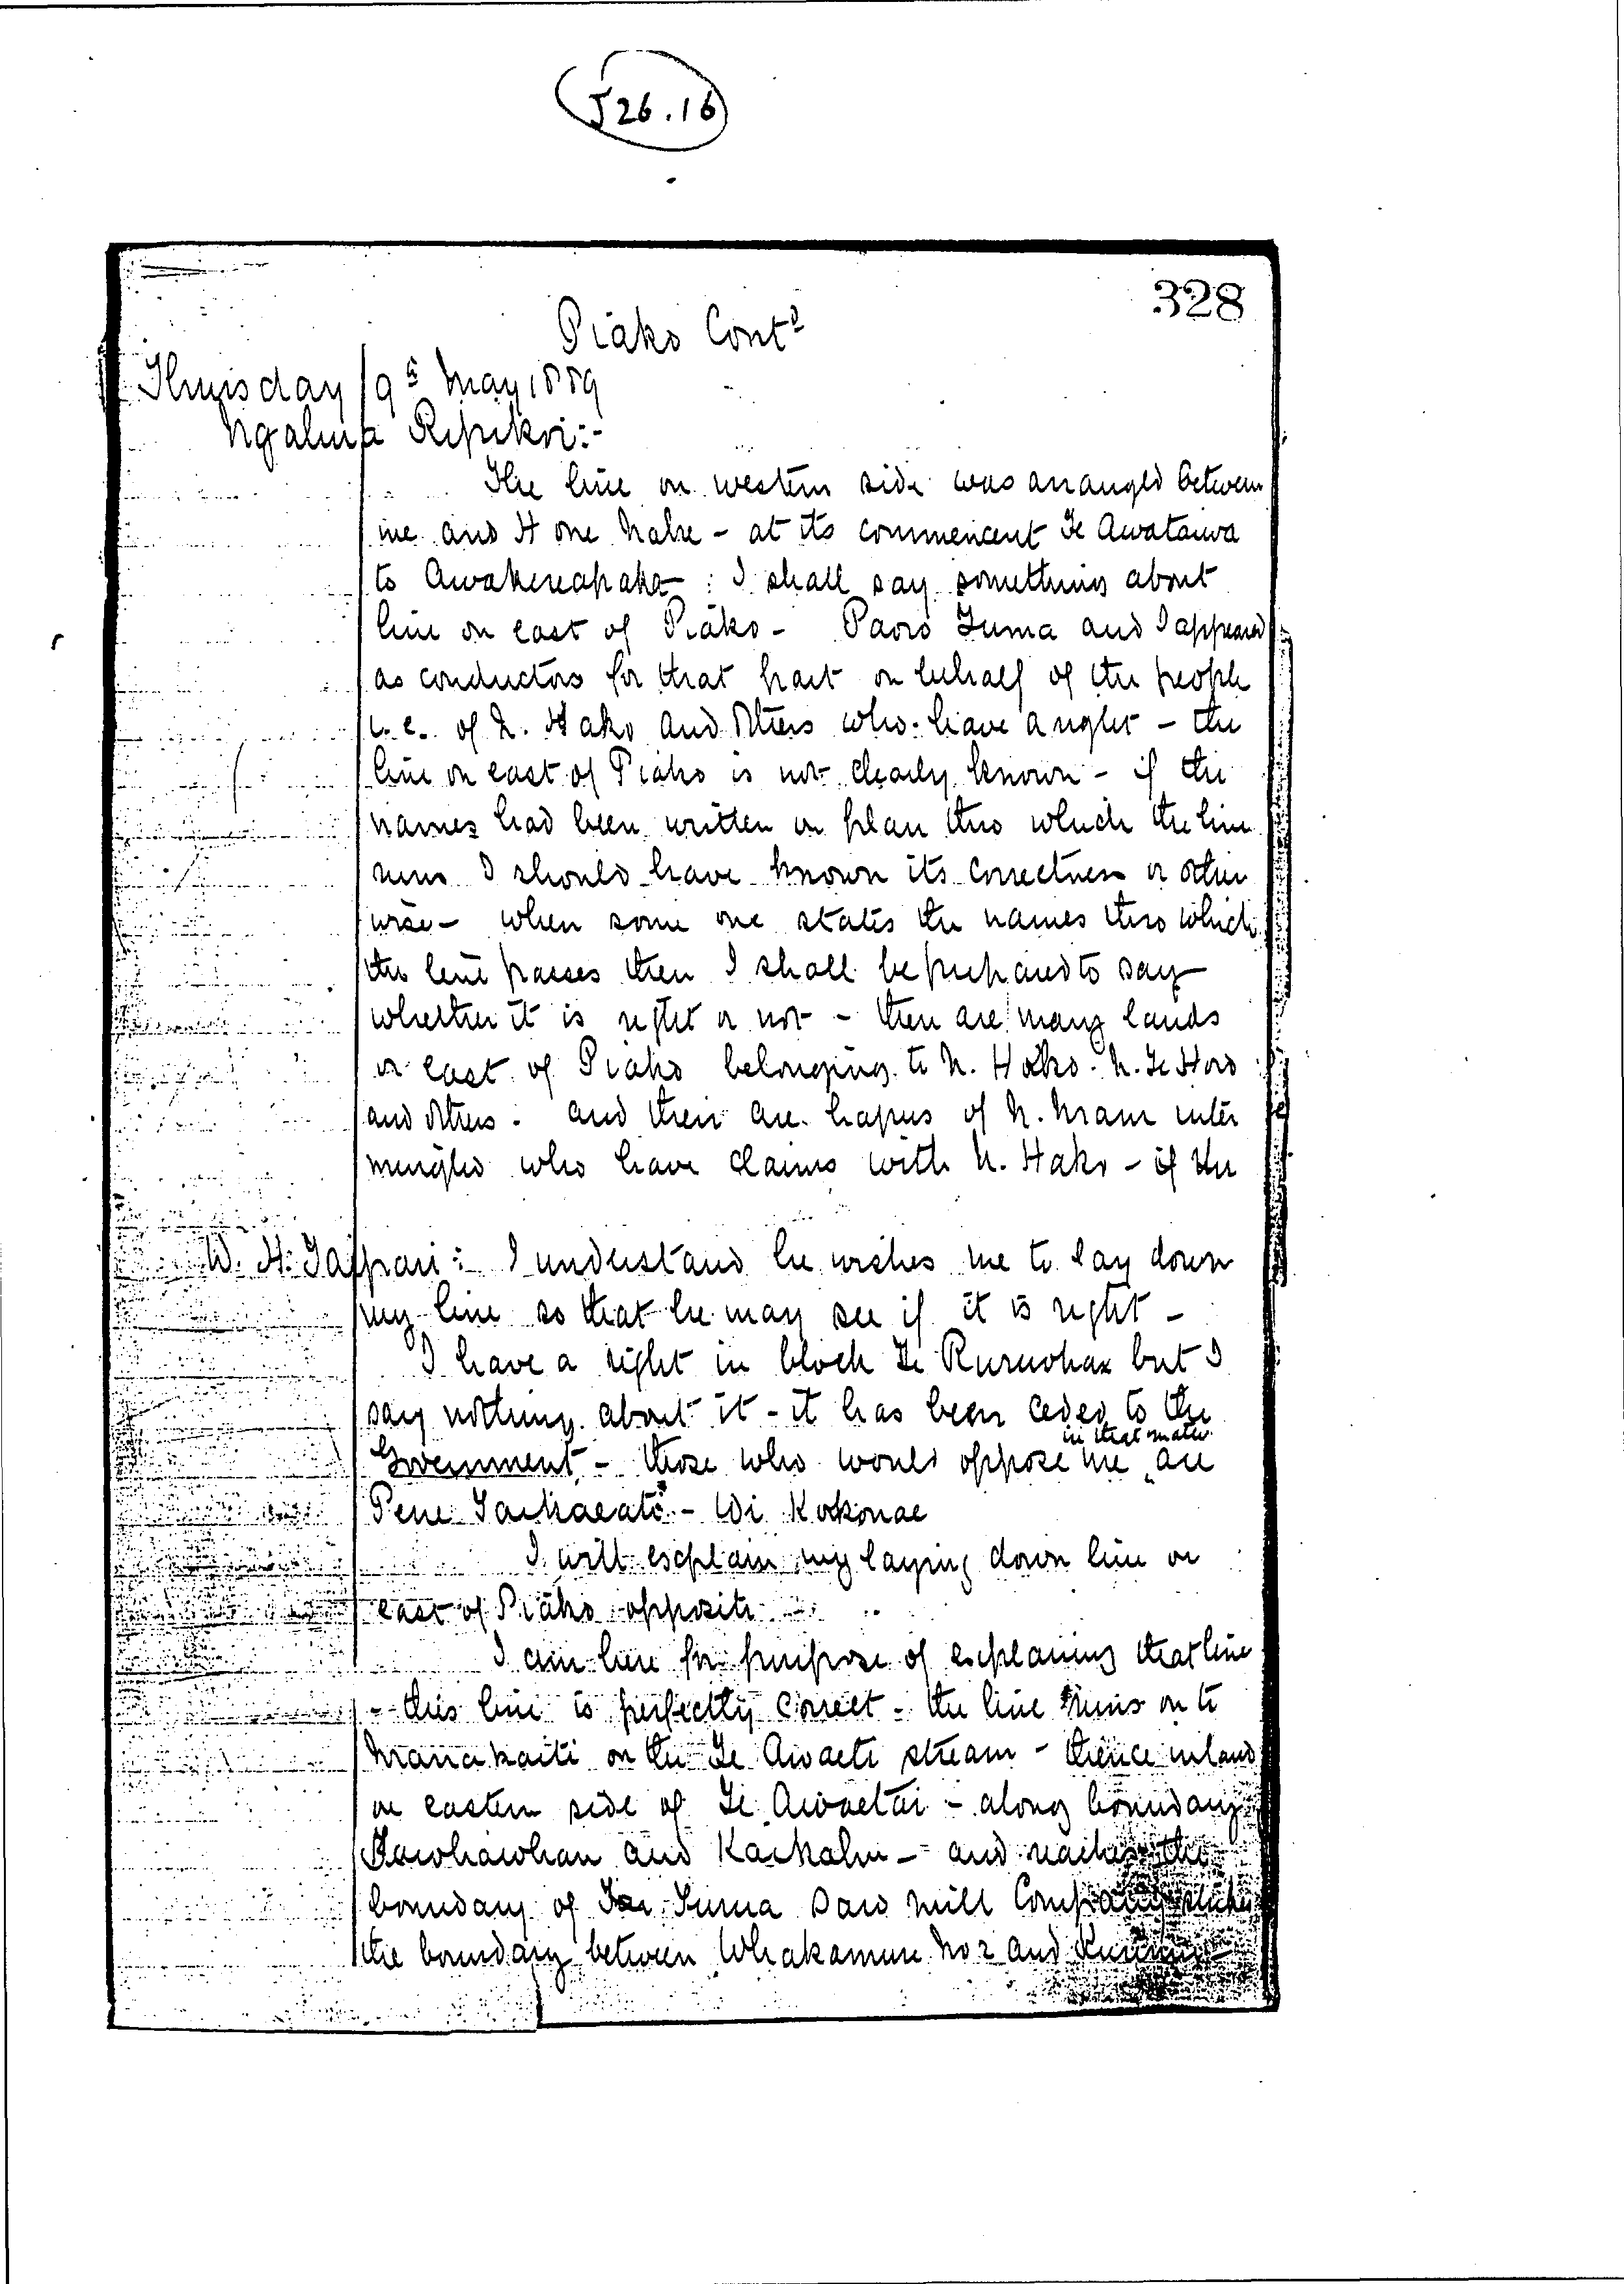 J 26.16
328
Piako Contd
Thursday 9th May 1889
Ngahuia Ripikoi:-
The line on western side was arranged between
me and Hone Nahe - at its commencent Te Awataiwa
to Awakereapaka : I shall say something about
line on east of Piako - Paora Tuma and I appeared
as conductors for that part on behalf of the people
i.e. of N. Hako and others who have a right - the
line on east of Piako is not clearly known - if the
names had been written on plan thro which the line
runs I should have known its correctness or other
wise - when some one states the names thro which
the line passes then I shall be prepared to say
whether it is right or not - there are many lands
on east of Piako belonging to N. Hako. N. Te Horo
and others. and there are hapus of N. Maru inter
mingled who have claims with N. Hako - if the
W. H. Taipari: I understand he wishes me to lay down
my line so that he may see if it is right -
I have a right in block Te Ruruohau but I
say nothing about it - it has been ceded to the
in that matter
Government - those who would oppose me are
Pene - Wi Kokonae
I will explain my laying down line on
east of Piako opposite
I am here for purpose of explaning that line
- this line is perfectly correct - the line runs on to
Manakaiti on the Te Awaeti stream - thence inland
on eastern side of Te Awaetai - along boundary
Tawhawhau and Kaikahu - and reaches the
boundary of Tuma Saw Mill Company
the boundary between Whakamuri No 2 and